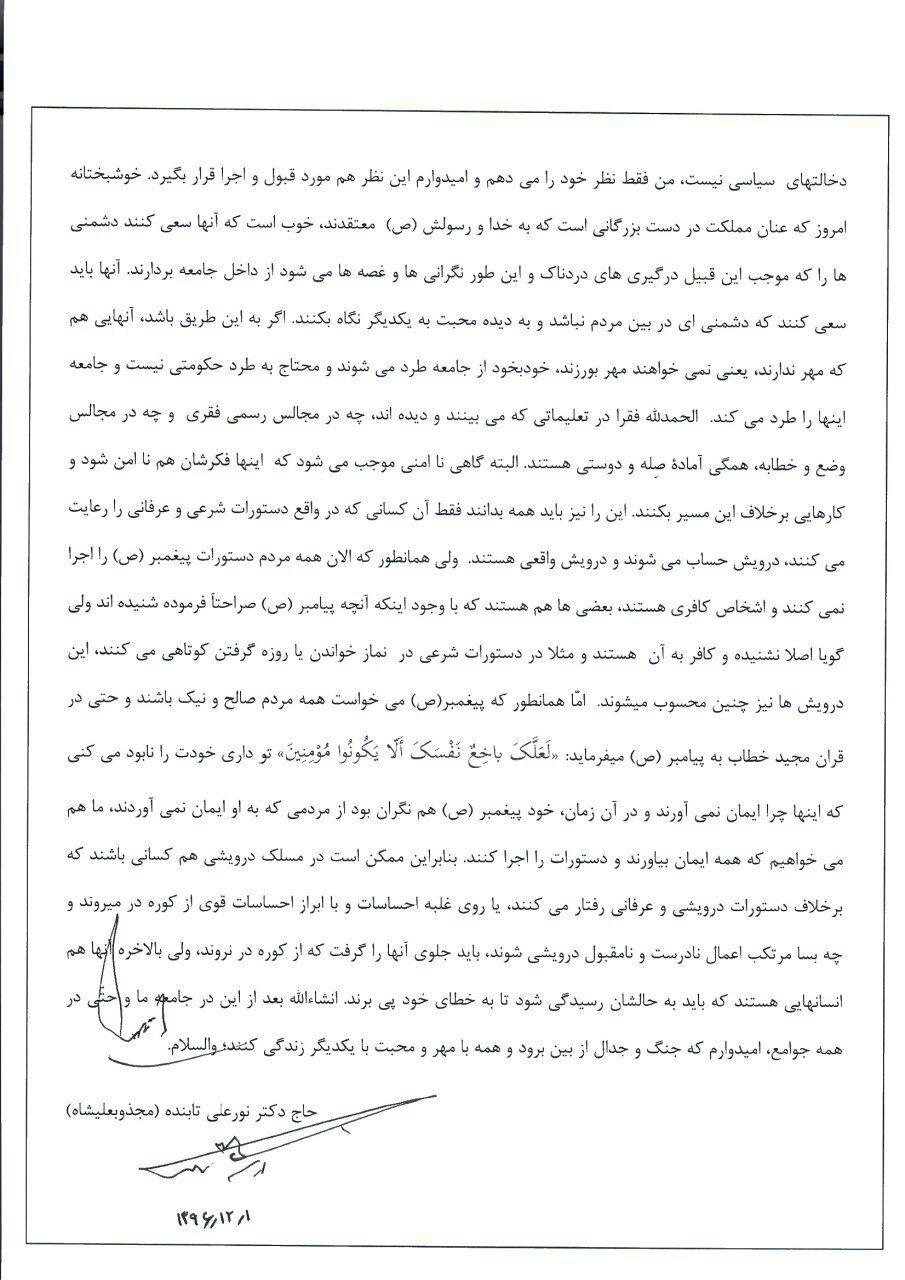 دخالتهای سیاسی نیست، من فقط نظر خود را می دهم و امیدوارم این نظر هم مورد قبول و اجرا قرار بگیرد. خوشبختانه
امروز که عنان مملکت در دست بزرگانی است که به خدا و رسولش (ص) معتقدند، خوب است که آنها سعی کنند دشمنی
ها را که موجب این قبیل درگیری های دردناک و این طور نگرانی ها و غصه ها می شود از داخل جامعه بردارند. آنها باید
سعی کنند که دشمنی ای در بین مردم نباشد و به دیده محبت به یکدیگر نگاه بکنند. اگر به این طریق باشد، آنهایی هم
که مهر ندارند، یعنی نمی خواهند مهر بورزند، خودبخود از جامعه طرد می شوند و محتاج به طرد حکومتی نیست و جامعه
اینها را طرد می کند. الحمدلله فقرا در تعلیماتی که می بینند و دیده اند، چه در مجالس رسمی فقری و چه در مجالس
وضع و خطابه، همگی آمادۀ صِله و دوستی هستند. البته گاهی نا امنی موجب می شود که اینها فکرشان هم نا امن شود و
کارهایی برخلاف این مسیر بکنند. این را نیز باید همه بدانند فقط آن کسانی که در واقع دستورات شرعی و عرفانی را رعایت
می کنند، درویش حساب می شوند و درویش واقعی هستند. ولی همانطور که الان همه مردم دستورات پیغمبر (ص) را اجرا
نمی کنند و اشخاص کافری هستند، بعضی ها هم هستند که با وجود اینکه آنچه پیامبر (ص) صراحتاً فرموده شنیده اند ولی
گویا اصلا نشنیده و کافر به آن هستند و مثلا در دستورات شرعی در نماز خواندن یا روزه گرفتن کوتاهی می کنند، این
درویش ها نیز چنین محسوب میشوند. امّا همانطور که پیغمبر(ص) می خواست همه مردم صالح و نیک باشند و حتی در
قران مجید خطاب به پیامبر (ص) میفرماید: «لَعَلَّکَ باخِعٌ نَفْسَکَ ألّا یَکُونُوا مُوْمِنِینَ» تو داری خودت را نابود می کنی
که اینها چرا ایمان نمی آورند و در آن زمان، خود پیغمبر (ص) هم نگران بود از مردمی که به او ایمان نمی آوردند، ما هم
می خواهیم که همه ایمان بیاورند و دستورات را اجرا کنند. بنابراین ممکن است در مسلک درویشی هم کسانی باشند که
برخلاف دستورات درویشی و عرفانی رفتار می کنند، یا روی غلبه احساسات و با ابراز احساسات قوی از کوره در میروند و
چه بسا مرتکب اعمال نادرست و نامقبول درویشی شوند، باید جلوی آنها را گرفت که از کوره در نروند، ولی بالاخره آنها هم
انسانهایی هستند که باید به حالشان رسیدگی شود تا به خطای خود پی برند. انشاءالله بعد از این در جامعه ما و حتّی در
همه جوامع، امیدوارم که جنگ و جدال از بین برود و همه با مهر و محبت با یکدیگر زندگی کنند؛ والسلام.
حاج دکتر نورعلی تابنده (مجذوبعلیشاه)
۱۳۹۶٫۱۲٫۱